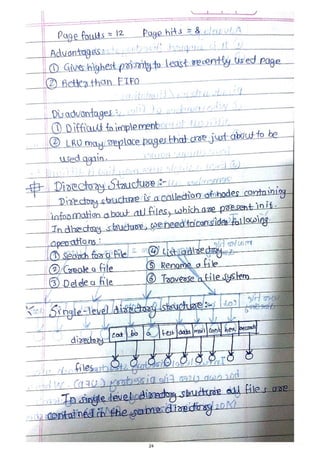 Page faults = 12 Page hits = 8
Advantages:
① Gives highest priority to least recently used page
② Better than FIFO
Disadvantages:
① Difficult to implement
② LRU may replace pages that are just about to be
used again.
Directory Structure :-
Directory structure is a collection of nodes containing
information about all files, which are present in it.
In directory structure, we need to consider following
operations:
① Search for a file ④ List a directory
② Create a file ⑤ Rename a file
③ Delete a file ⑥ Traverse a file system
Single-level directory structure:-
directory cat bo a test data mail cont hex records
files
In single level directory structure all files are
contained in the same directory
24